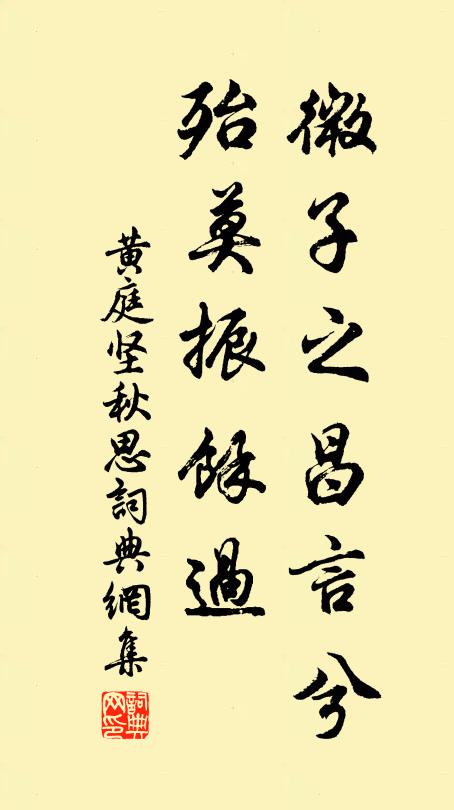 微子之昌言兮
殆莫振餘過
黄庭坚秋思詞典網集
詞典网印